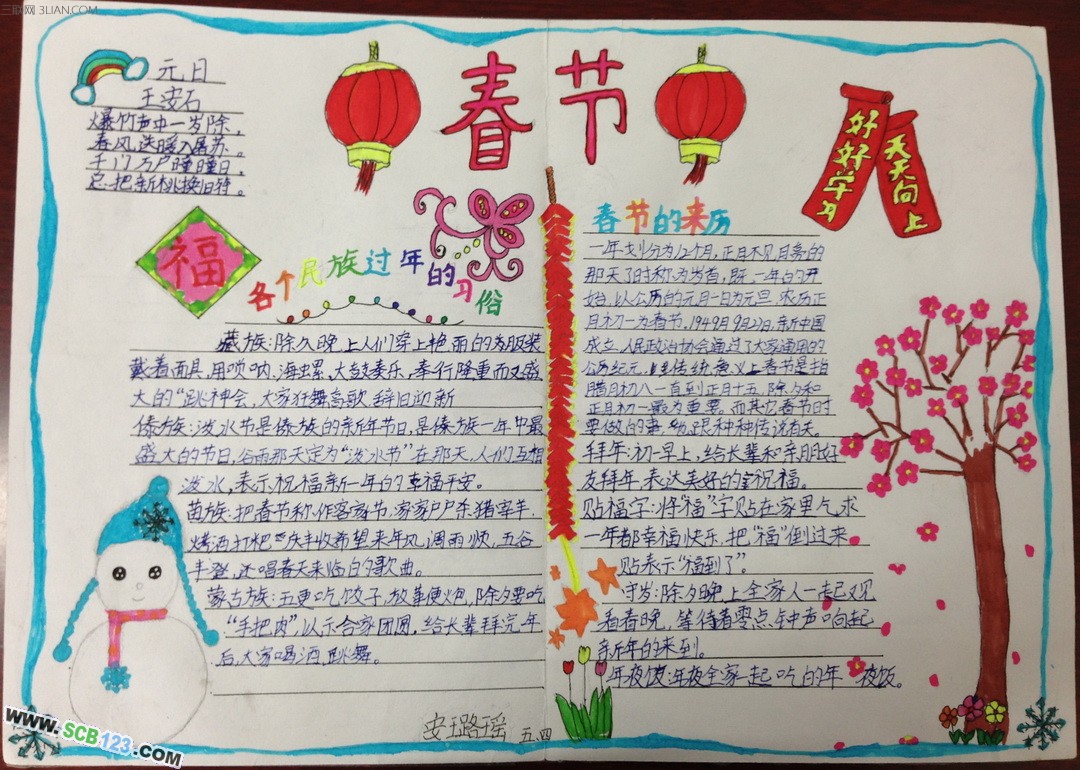 三联网 3LIAN.COM
春节
元日
王安石
爆竹声中一岁除，
春风送暖入屠苏。
千门万户曈曈日，
总把新桃换旧符。
福
各个民族过年的习俗
藏族：除夕晚上人们穿上艳丽的服装
戴着面具，用唢呐、海螺、大鼓奏乐，奉行隆重而又盛
大的“跳神会，大家狂舞高歌 辞旧迎新
傣族：泼水节是傣族的新年节日，是傣族一年中最
盛大的节日，谷雨那天定为“泼水节”在那天，人们互相
泼水，表示祝福新一年的幸福平安。
苗族：把春节称作客家节，家家户户杀猪宰羊，
烤酒打粑 庆丰收希望来年风调雨顺，五谷
丰登，还唱春天来临的歌曲。
蒙古族：五更吃饺子、放革便火包，除夕要吃
“手把肉”以示合家团圆，给长辈拜完年
后，大家喝酒、跳舞。
好好学习
天天向上
春节的来历
一年划分为12个月，正月不见月亮的
那天子时称为岁首，既一年的开
始，以公历的元月一日为元旦 农历正
月初一为春节，1949月9月27日，新中国
成立，人民政治协会通过了大家通用的
公历纪元，传统意义上春节是指
腊月初八一直到正月十五，除夕和
正月初一最为重要。而其它春节时
要做的事 跟种种传说有关。
拜年：初一早上，给长辈和亲朋好
友拜年，表达美好的祝福。
贴福字：将“福”字贴在家里，乞求
一年都幸福快乐，把“福”倒过来
贴表示“福到了”。
守岁：除夕晚上全家人一起观
看春晚，等待着零点钟声响起
新年的来到。
年夜饭：年夜全家一起吃的年夜饭。
安珏路瑶 五.四
www.SCB123.COM